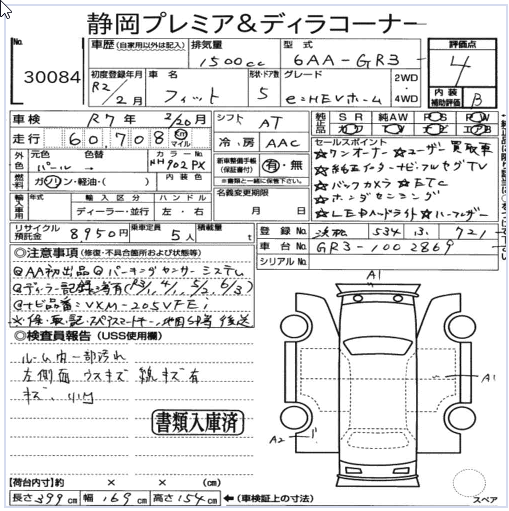 静岡プレミア&ディラコーナー
No.
30084
車歴 (自家用以外は記入)
排気量
1500cc
型式
6AA-GR3
評価点
4
初度登録年月
R2/2月
車名
フィット
形状・ドア数
5
グレード
e:HEVホーム
2WD
4WD
内装
補助評価
B
車検
R7年 2/20月
シフト
AT
純正品
SR
純AW
PS
PW
走行
60,708
km
マイル
冷房
AAC
セールスポイント
☆ワンオーナー ☆ユーザー買取車
外色
元色
パール
色替
カラーNo.
NH902PX
新車整備手帳
(保証書付)
有・無
※書類と一緒に保管下さい。
☆バックカメラ ☆ETC
燃料
ガソリン・軽油・( )
内装色
☆ホンダセンシング
名義変更期限
月 日
☆LEDヘッドライト ☆ハーフレザー
輸入車用
年式
輸入区分
ディーラー・並行
ハンドル
左・右
リサイクル
預託金
8,950円
乗車定員
5人
積載量
t
登録No.
534
721
車台No.
GR3-1002869
シリアルNo.
◎注意事項 (修復・不具合箇所および状態等)
◎AA初出品 ◎パーキングセンサーシステム
◎ナビ品番:VXM-205VFEi
◎検査員報告 (USS使用欄)
ルーム内一部汚れ
左側面 ウスキズ 線キズ有
キズ、凹
書類入庫済
A1
A1
A2
【荷台内寸】約 × × (cm)
長さ399cm 幅169cm 高さ154cm ←(車検証上の寸法)
スペア